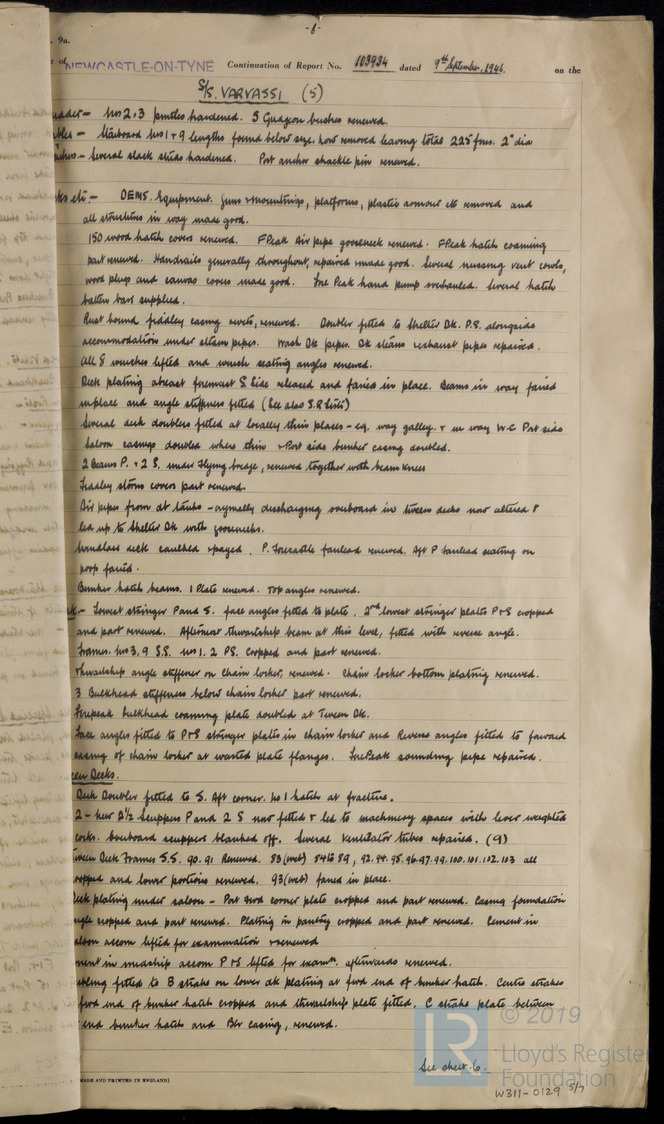 -6-
. 9a.
of NEWCASTLE-ON-TYNE Continuation of Report No. 103934 dated 9th September, 1946. on the
S/S. VARVASSI (5)
udder - Nos 2+3 pintles hardened. 5 Gudgeon bushes renewed.
bles - Starboard Nos 1+9 lengths found below size, now removed leaving total 225 fms. 2" dia
Several slack studs hardened. Port anchor shackle pin renewed.
ks etc - DEMS. Equipment. Guns + mountings, platforms, plastic armour etc removed and
all structures in way made good.
150 wood hatch covers renewed. F Peak Air pipe gooseneck renewed. F Peak hatch coaming
part renewed. Handrails generally throughout, repaired + made good. Several missing vent cowls,
wood plugs and canvas covers made good. Fore Peak hand pump overhauled. Several hatch
batten bars supplied.
Rust bound fiddley casing rivets, renewed. Doubler fitted to Shelter Dk. P.S. alongside
accommodation under steam pipes. Wash Dk pipes. Dk steam + exhaust pipes repaired.
All 8 winches lifted and winch seating angles renewed.
Deck plating abreast foremast S. side released and faired in place. Beams in way faired
in place and angle stiffeners fitted (See also S.R. Lists)
Several deck doublers fitted at locally thin places - eg. way galley. + in way W.C Port side
Saloon casings doubled where thin + Port side bunker casing doubled.
2 Beams P. + 2 S. under Flying bridge, renewed together with beam knees
Fiddley storm covers part renewed.
Air pipes from dt tanks - orginally discharging overboard in tween decks now altered &
led up to Shelter Dk with goosenecks.
Windlass deck caulked + payed. P. Forecastle fairlead renewed. Aft P fairlead seating on
poop faired.
Bunker hatch beams. 1 Plate renewed. Top angles renewed.
k - Lowest stringer P and S. face angles fitted to plate. 2nd lowest stringer plates P+S cropped
and part renewed. Aftermost thwartship beam at this level, fitted with reverse angle.
Frames. Nos 3, 9 S.S. Nos 1. 2 P.S. Cropped and part renewed.
thwartship angle stiffener on Chain locker, renewed. Chain locker bottom plating renewed.
3 Bulkhead stiffeners below chain locker part renewed.
Forepeak bulkhead coaming plate doubled at Tween Dk.
Face angles fitted to P+S stringer plates in chain locker and Reverse angles fitted to forward
casing of chain locker at wasted plate flanges. Fore Peak sounding pipe repaired.
een Decks.
Deck Doubler fitted to S. Aft corner. No 1 hatch at fracture.
2 - new 2½ Scuppers P and 2 S now fitted + led to machinery spaces with lever weighted
cocks. Overboard scuppers blanked off. Several Ventilator tubes repaired. (9)
ween Deck Frames S.S. 90. 91 Renewed. 83 (web) 84 to 89, 92. 94. 95. 96. 97. 99. 100. 101. 102. 103 all
ropped and lower portions renewed. 93 (web) faired in place.
Deck plating under saloon - Port fwd corner plate cropped and part renewed. Casing foundation
ngle cropped and part renewed. Plating in pantry cropped and part renewed. Cement in
aloon accom lifted for examination + renewed
ment in midship accom P+S lifted for examn. afterwards renewed.
ubling fitted to B strake on lower dk plating at fwd end of bunker hatch. Centre strakes
fwd end of bunker hatch cropped and thwartship plate fitted. C strake plate between
end bunker hatch and Blr casing, renewed.
See sheet. 6.
MADE AND PRINTED IN ENGLAND)
LR
© 2019
Lloyd's Register
Foundation
W311-0129 5/7